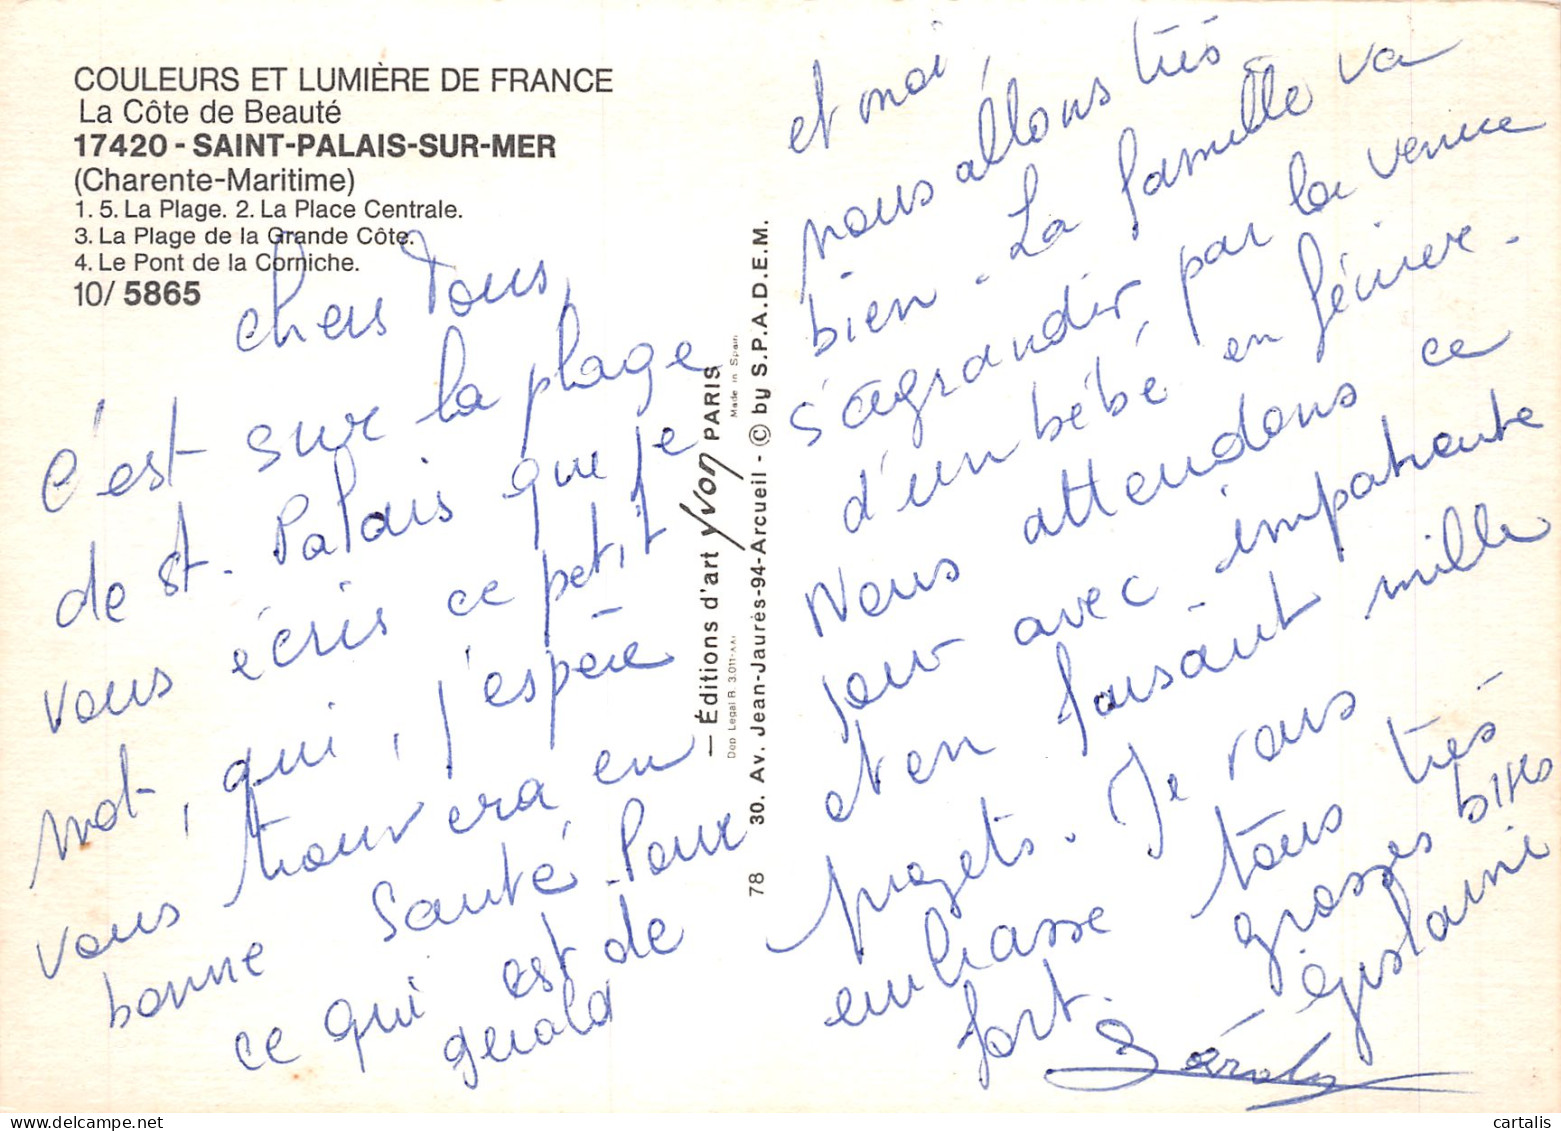 COULEURS ET LUMIÈRE DE FRANCE
La Côte de Beauté
17420 - SAINT-PALAIS-SUR-MER
(Charente-Maritime)
1. 5. La Plage. 2. La Place Centrale.
3. La Plage de la Grande Côte.
4. Le Pont de la Corniche.
10/ 5865
chers Tous,
C'est sur la plage
de St. Palais que je
vous écris ce petit
mot, qui, j'espère
vous trouvera en
bonne santé. Pour
ce qui est de
gerald
— Éditions d'art yvon PARIS
Dép. Légal R. 3.011-A.A.I
Made in Spain
78 30. Av. Jean-Jaurés-94-Arcueil - © by S.P.A.D.E.M.
et moi,
nous allons très
bien - La famille va
s'agrandir, par la venue
d'un bébé en février.
Nous attendons ce
jour avec impatiente
et en faisant mille
projets. Je vous
embrasse tous très
fort. grosses bises
Gérald gislaine
cartalis